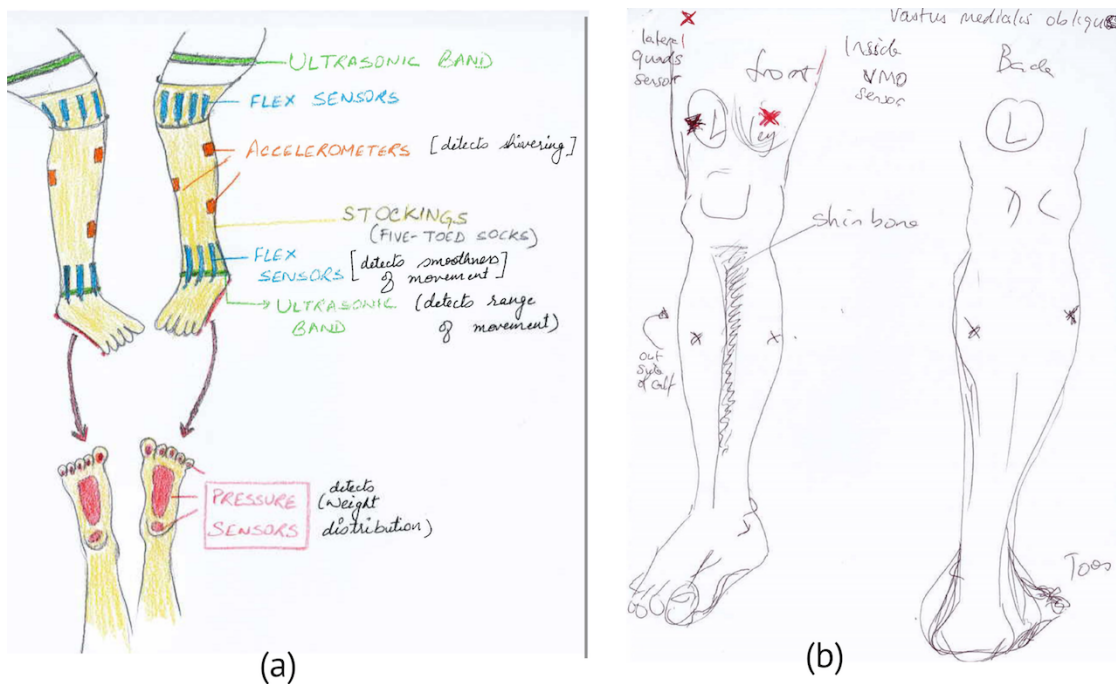 ULTRASONIC BAND
FLEX SENSORS
ACCELEROMETERS [detects shivering]
STOCKINGS
(FIVE-TOED SOCKS)
FLEX
SENSORS
[detects smoothness
of movement]
ULTRASONIC
BAND
(detects range
of movement)
PRESSURE
SENSORS
detects
(Weight
distribution)
(a)
lateral
quads
sensor
front
Inside
VMO
sensor
Vastus medialis
Back
L
leg
L
shinbone
out
side
of calf
Toes
(b)